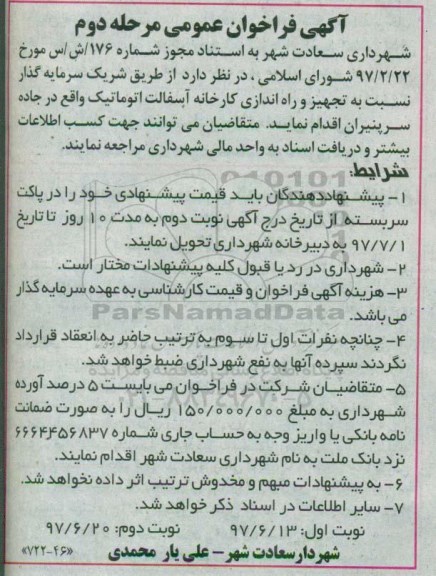 آگهی فراخوان عمومی مرحله دوم
شهرداری سعادت شهر به استناد مجوز شماره ۱۷۶/ش/س مورخ
۹۷/۲/۲۲ شورای اسلامی ، در نظر دارد از طریق شریک سرمایه گذار
نسبت به تجهیز و راه اندازی کارخانه آسفالت اتوماتیک واقع در جاده
سرپنیران اقدام نماید. متقاضیان می توانند جهت کسب اطلاعات
بیشتر و دریافت اسناد به واحد مالی شهرداری مراجعه نمایند.
شرایط:
۱- پیشنهاددهندگان باید قیمت پیشنهادی خود را در پاکت
سربسته از تاریخ درج آگهی نوبت دوم به مدت ۱۰ روز تا تاریخ
۹۷/۷/۱ به دبیرخانه شهرداری تحویل نمایند.
۲- شهرداری در رد یا قبول کلیه پیشنهادات مختار است.
۳- هزینه آگهی فراخوان و قیمت کارشناسی به عهده سرمایه گذار
می باشد.
ParsNamadData
۴- چنانچه نفرات اول تا سوم به ترتیب حاضر به انعقاد قرارداد
نگردند سپرده آنها به نفع شهرداری ضبط خواهد شد.
۵- متقاضیان شرکت در فراخوان می بایست ۵ درصد آورده
شهرداری به مبلغ ۱۵۰/۰۰۰/۰۰۰ ریال را به صورت ضمانت
نامه بانکی یا واریز وجه به حساب جاری شماره ۶۶۶۴۴۵۶۸۳۷
نزد بانک ملت به نام شهرداری سعادت شهر اقدام نمایند.
۶- به پیشنهادات مبهم و مخدوش ترتیب اثر داده نخواهد شد.
۷- سایر اطلاعات در اسناد ذکر خواهد شد.
نوبت اول: ۹۷/۶/۱۳ نوبت دوم: ۹۷/۶/۲۰
شهردار سعادت شهر - علی یار محمدی «۷۲۲-۴۶»